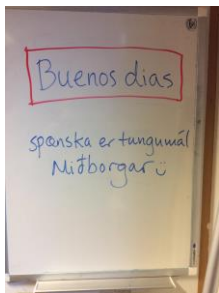 Buenos dias
spænska er tungumál
Miðborgar